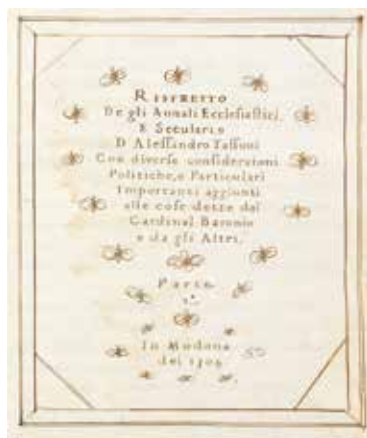 RISTRETTO
De gli Annali Ecclesiastici,
E Secolari
D Alessandro Tassoni
Con diverse considerationi
Politiche, e Particulari
Importanti aggionti
alle cose dette dal
Cardinal Baronio
e da gli Altri.
Parte
In Modona
del 1705